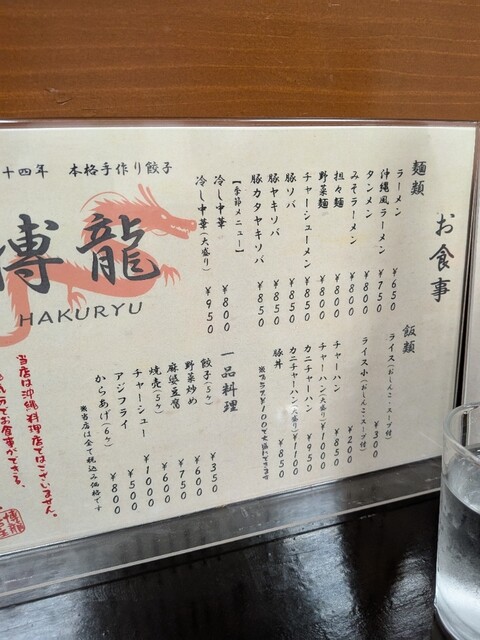 お食事
麺類
ラーメン ¥650
沖縄風ラーメン ¥750
タンメン ¥800
みそラーメン ¥800
担々麺 ¥800
野菜麺 ¥800
チャーシューメン ¥850
豚ソバ ¥850
豚ヤキソバ ¥850
豚カタヤキソバ ¥850
【季節メニュー】
冷し中華 ¥800
冷し中華(大盛り) ¥950
飯類
ライス(おしんこ・スープ付) ¥300
ライス小(おしんこ・スープ付) ¥200
チャーハン ¥850
チャーハン(大盛り) ¥1000
カニチャーハン ¥950
カニチャーハン(大盛り) ¥1100
豚丼 ¥850
一品料理
餃子(5ヶ) ¥350
野菜炒め ¥600
麻婆豆腐 ¥750
焼売(5ヶ) ¥600
チャーシュー ¥1000
アジフライ ¥500
からあげ(6ヶ) ¥800
※当店は全て税込み価格です
十四年 本格手作り餃子
博龍
HAKURYU
当店は沖縄料理店ではございません。
でお食事ができる、